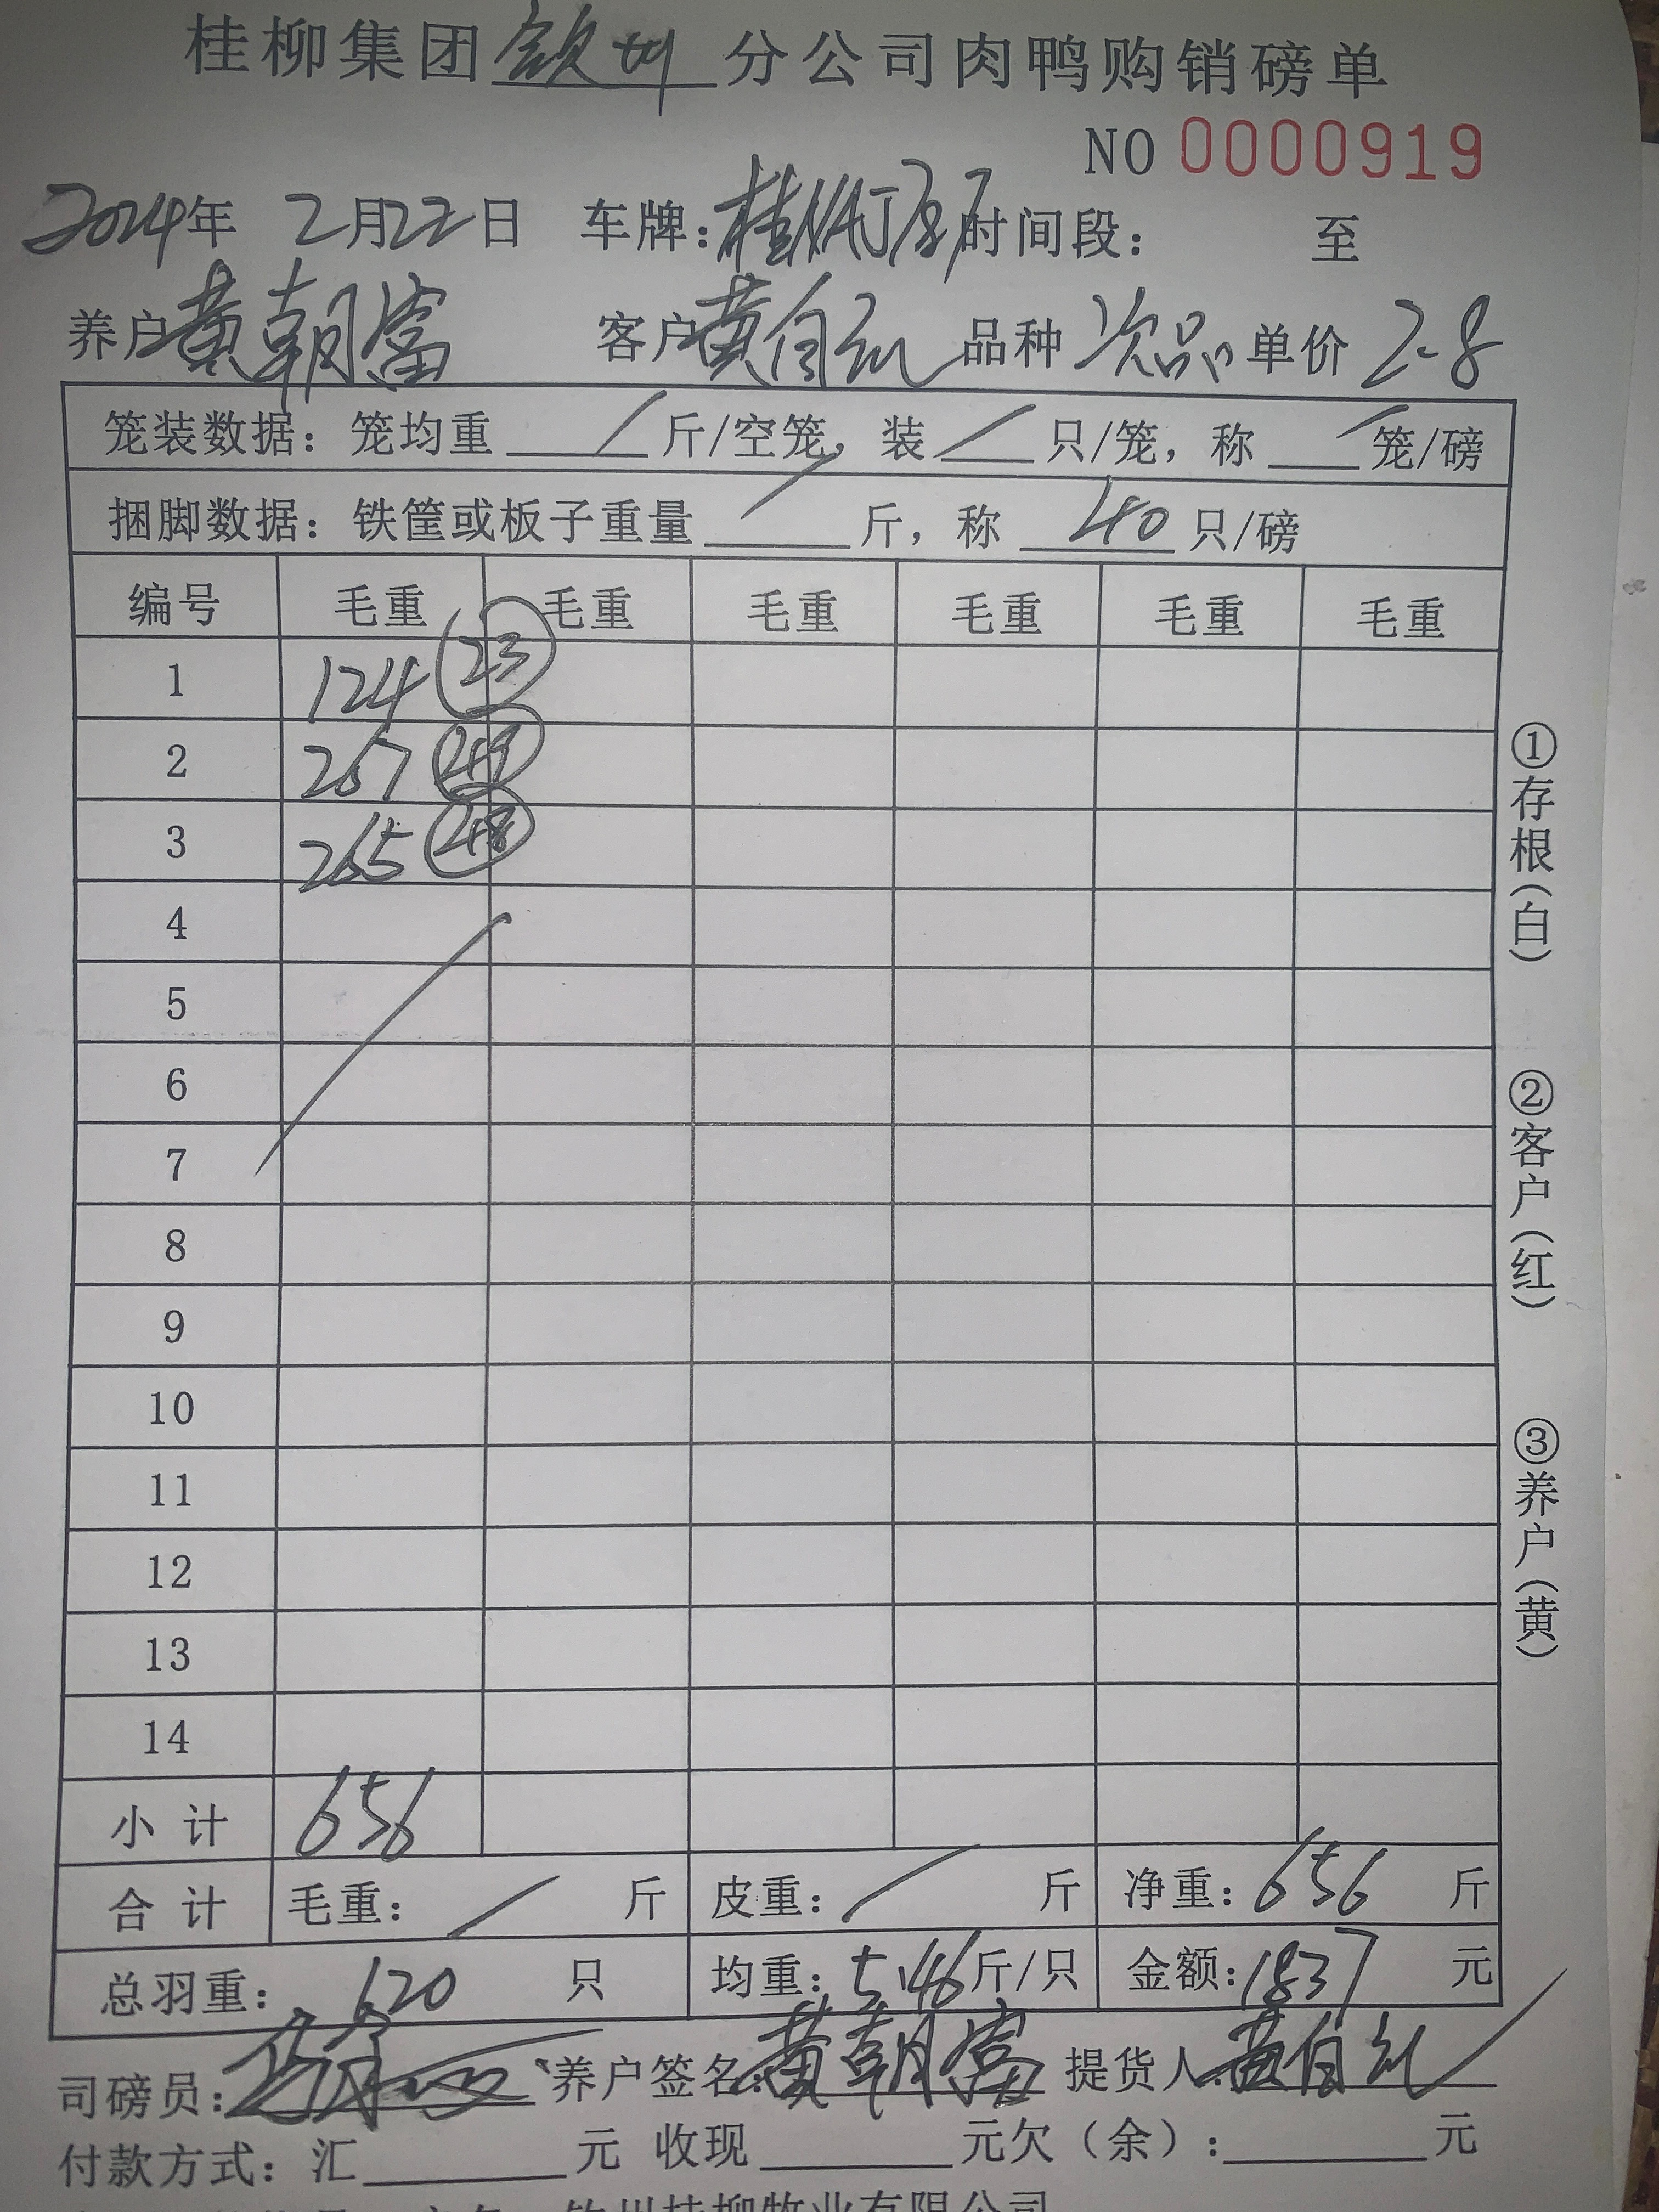 桂柳集团钦州分公司肉鸭购销磅单
NO 0000919
2024年 2月22日 车牌: 时间段: 至
养户黄朝富 客户黄自 品种 次品 单价 2-8
笼装数据: 笼均重 / 斤/空笼, 装 / 只/笼, 称 / 笼/磅
捆脚数据: 铁筐或板子重量 / 斤, 称 40 只/磅
编号 毛重 毛重 毛重 毛重 毛重 毛重
1 124 (23)
2 267 (49)
3 265 (48)
4
5
6
7
8
9
10
11
12
13
14
小计 656
合计 毛重: / 斤 皮重: / 斤 净重: 656 斤
总羽重: 120 只 均重: 5.46斤/只 金额: 1837 元
司磅员: 养户签名: 黄朝富 提货人: 黄自
付款方式: 汇 元 收现 元欠(余): 元
钦州桂柳牧业有限公司
①存根(白)
②客户(红)
③养户(黄)